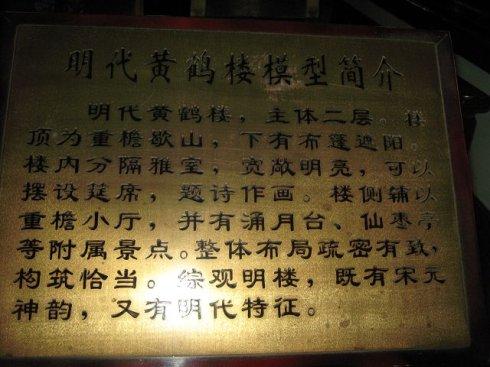 明代黄鹤楼模型简介
明代黄鹤楼，主体二层。楼
顶为重檐歇山，下有布篷遮阳。
楼内分隔雅室，宽敞明亮，可以
摆设筵席，题诗作画。楼侧辅以
重檐小厅，并有涌月台、仙枣亭
等附属景点。整体布局疏密有致，
构筑恰当。综观明楼，既有宋元
神韵，又有明代特征。